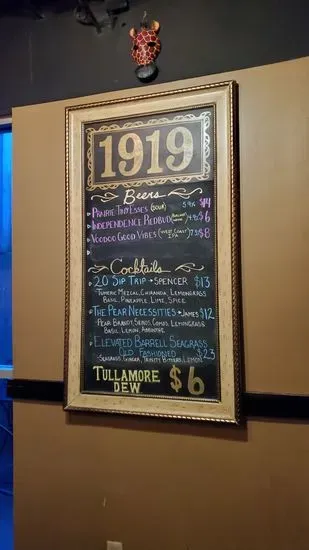 1919
Beers
Prairie Tiny Esses (Sour) $14
Independence Redbud $6
Voodoo Good Vibes (West Coast IPA) $8
Cocktails
20 Sip Trip → Spencer $13
Tumeric Mezcal, Lemongrass
Basil, Pineapple, Lime, Spice
The Pear Necessities → James $12
Pear Brandy, Lemongrass
Basil, Lemon, Absinthe
Elevated Barrell Seagrass
Old Fashioned $23
Seagrass, Ginger, Trinity Bitters, Lemon
Tullamore
Dew $6